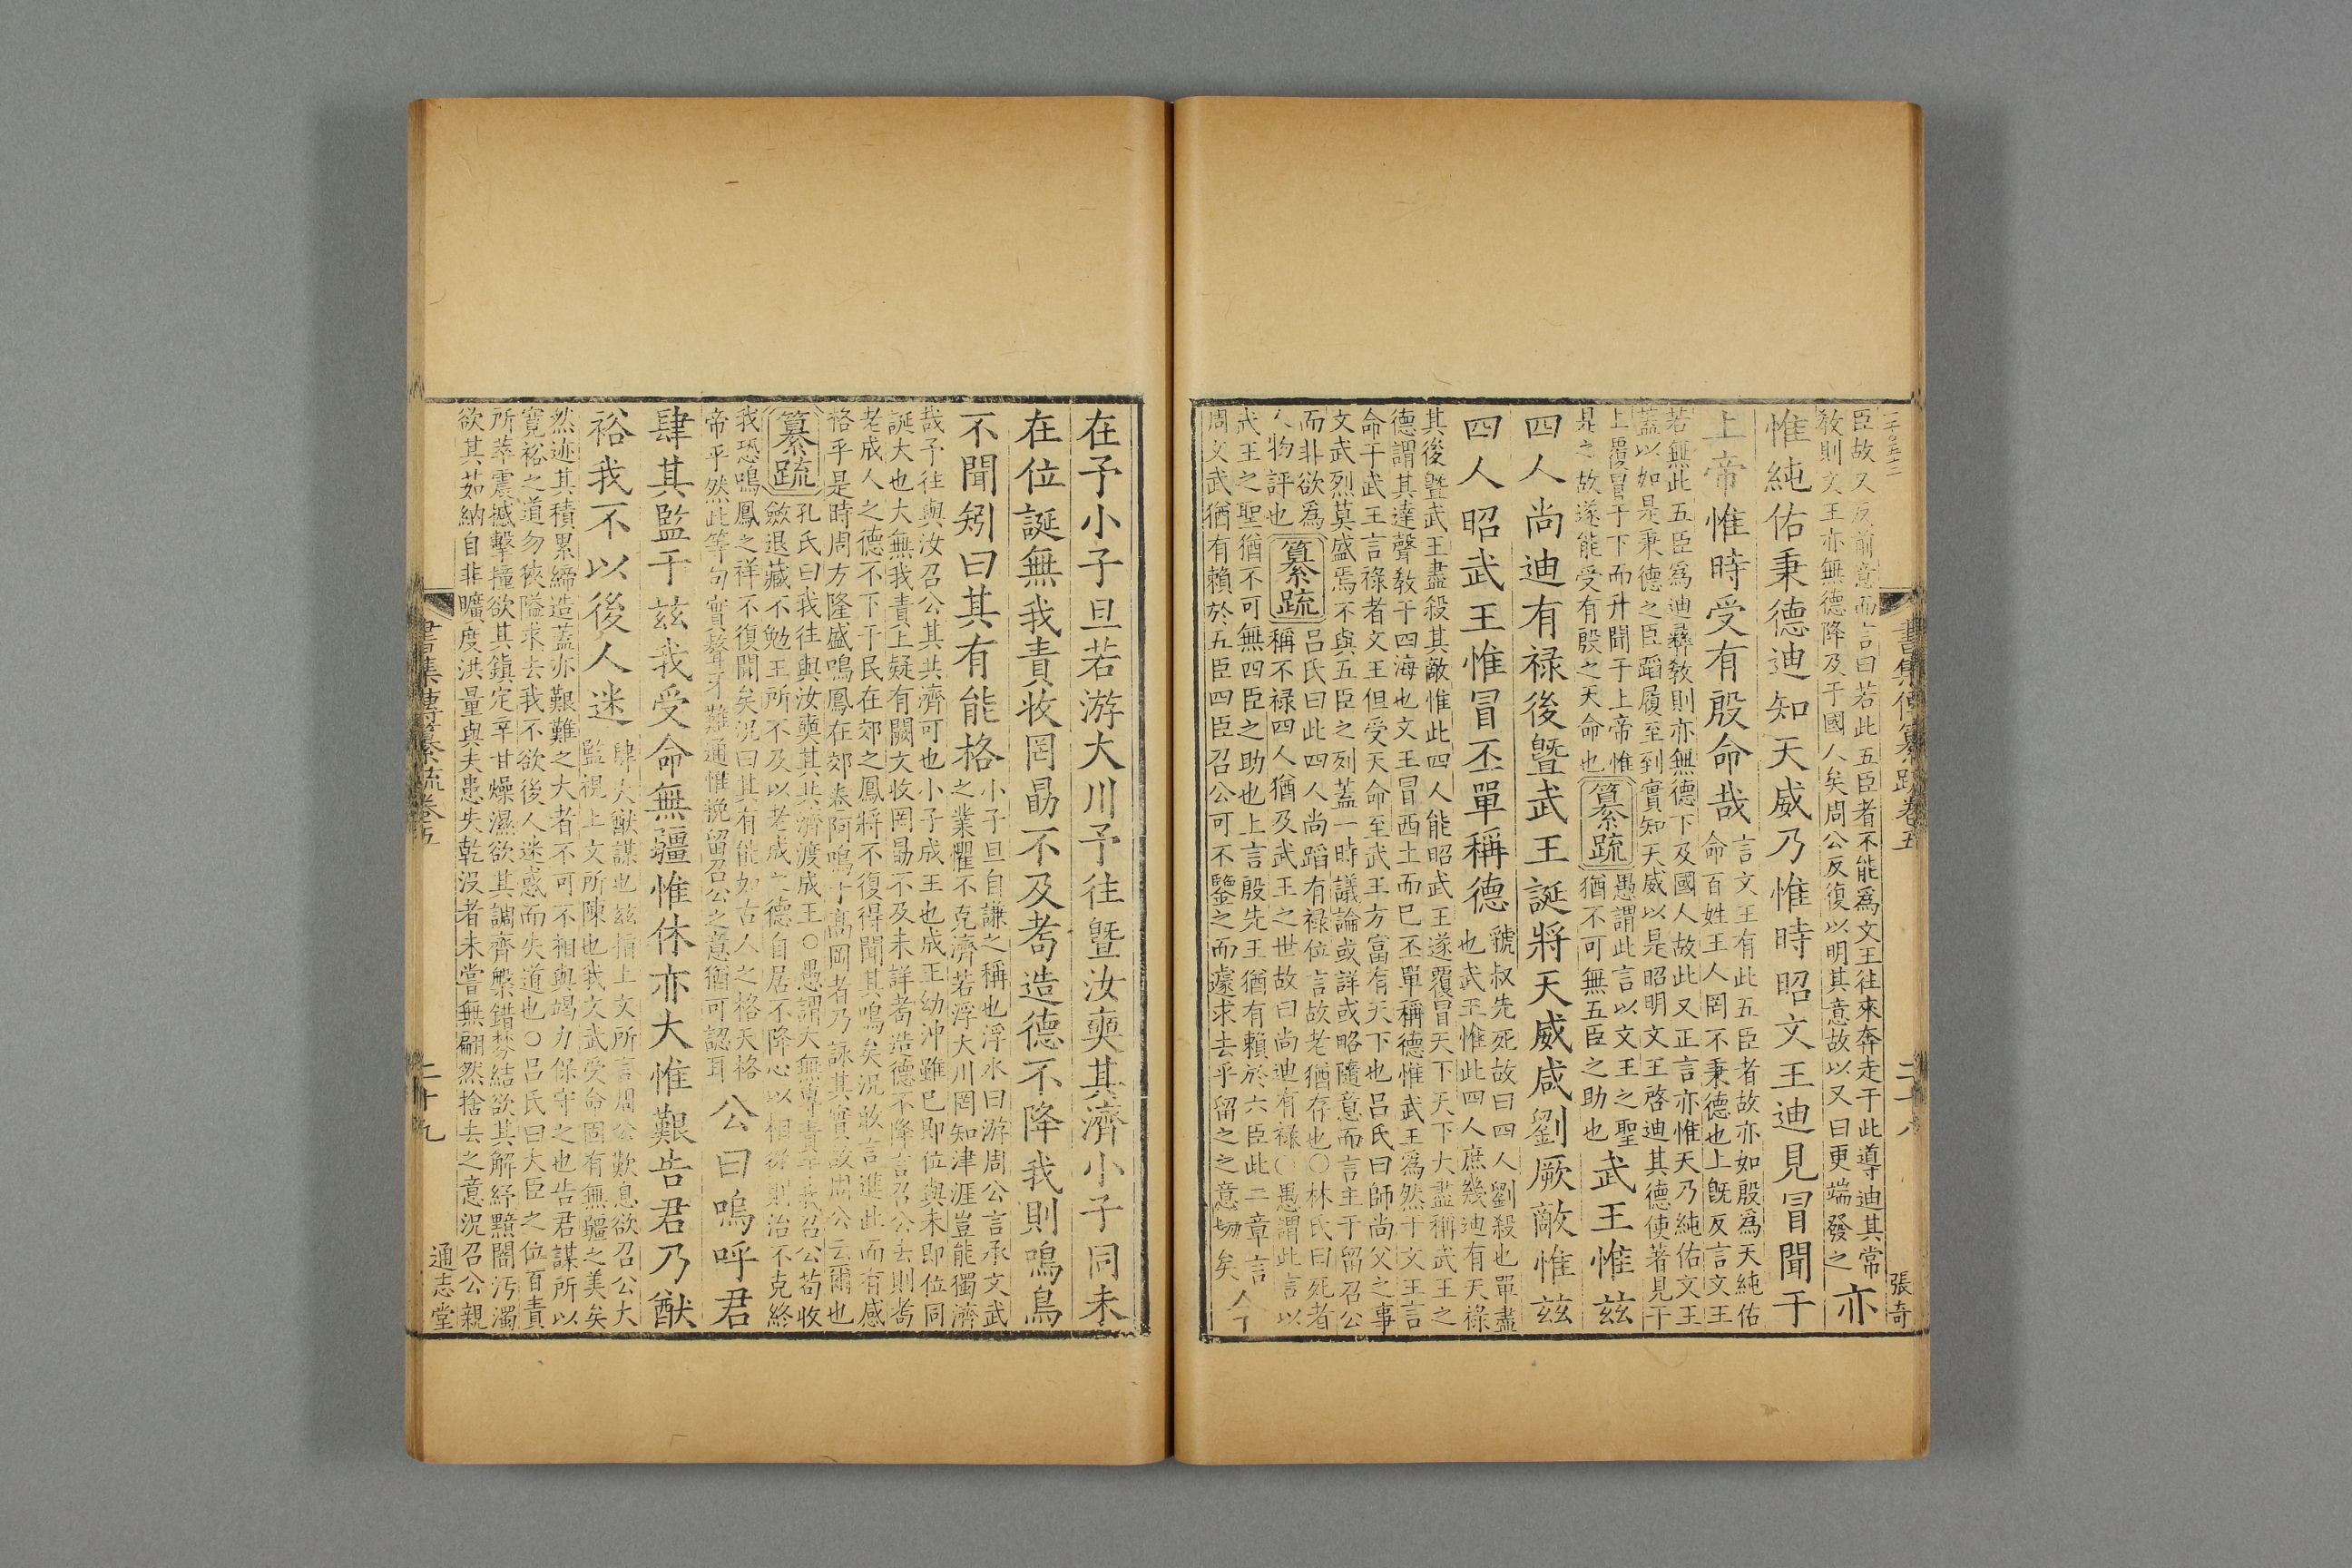 書集傳纂疏卷五
二十八
張奇
臣故又反前意而言曰若此五臣者不能爲文王往來奔走于此導迪其常
敎則文王亦無德降及于國人矣周公反復以明其意故以又曰更端發之
亦
惟純佑秉德迪知天威乃惟時昭文王迪見冒聞于
上帝惟時受有殷命哉
言文王有此五臣者故亦如殷爲天純佑
命百姓王人罔不秉德也上旣反言文王
若無此五臣爲迪彝敎則亦無德下及國人故此又正言亦惟天乃純佑文王
蓋以如是秉德之臣蹈履至到實知天威以是昭明文王啓迪其德使著見于
上覆冒于下而升聞于上帝惟
是之故遂能受有殷之天命也
纂疏
愚謂此言以文王之聖
猶不可無五臣之助也
武王惟茲
四人尚迪有祿後曁武王誕將天威咸劉厥敵惟茲
四人昭武王惟冒丕單稱德
虢叔先死故曰四人劉殺也單盡
也武王惟此四人庶幾迪有天祿
其後曁武王盡殺其敵惟此四人能昭武王遂覆冒天下天下大盡稱武王之
德謂其達聲敎于四海也文王冒西土而已丕單稱德惟武王爲然于文王言
命于武王言祿者文王但受天命至武王方富有天下也呂氏曰師尚父之事
文武烈莫盛焉不與五臣之列蓋一時議論或詳或略隨意而言主于留召公
而非欲爲
人物評也
纂疏
呂氏曰此四人尚蹈有祿位言故老猶存也○林氏曰死者
稱不祿四人猶及武王之世故曰尚迪有祿○愚謂此言以
武王之聖猶不可無四臣之助也上言殷先王猶有賴於六臣此二章言
周文武猶有賴於五臣四臣召公可不鑒之而遽求去乎留之之意切矣
今
在予小子旦若游大川予往曁汝奭其濟小子同未
在位誕無我責收罔勗不及耉造德不降我則鳴鳥
不聞矧曰其有能格
小子旦自謙之稱也浮水曰游周公言承文武
之業懼不克濟若浮大川罔知津涯豈能獨濟
哉予往與汝召公其共濟可也小子成王也成王幼沖雖已即位與未即位同
誕大也大無我責上疑有闕文收罔勗不及未詳耉造德不降言召公去則耉
老成人之德不下于民在郊之鳳將不復得聞其鳴矣況敢言進此而有感
格乎是時周方隆盛鳴鳳在郊卷阿鳴于高岡者乃詠其實故周公云爾也
纂疏
孔氏曰我往與汝奭其共濟渡成王○愚謂大無專責于我召公苟收
斂退藏不勉王所不及以老成之德自居不降心以相從則治不克終
我恐鳴鳳之祥不復聞矣況曰其有能如古人之格天格
帝乎然此等句實聱牙難通惟挽留召公之意猶可認耳
公曰嗚呼君
肆其監于茲我受命無疆惟休亦大惟艱告君乃猷
裕我不以後人迷
肆大猷謀也茲指上文所言周公歎息欲召公大
監視上文所陳也我文武受命固有無疆之美矣
然迹其積累締造蓋亦艱難之大者不可不相與竭力保守之也告君謀所以
寬裕之道勿狹隘求去我不欲後人迷惑而失道也○呂氏曰大臣之位百責
所萃震撼擊撞欲其鎭定辛甘燥濕欲其調齊槃錯棼結欲其解紓黯闇汚濁
欲其茹納自非曠度洪量與夫患失乾沒者未嘗無翩然捨去之意況召公親
書集傳纂疏卷五
二十九
通志堂